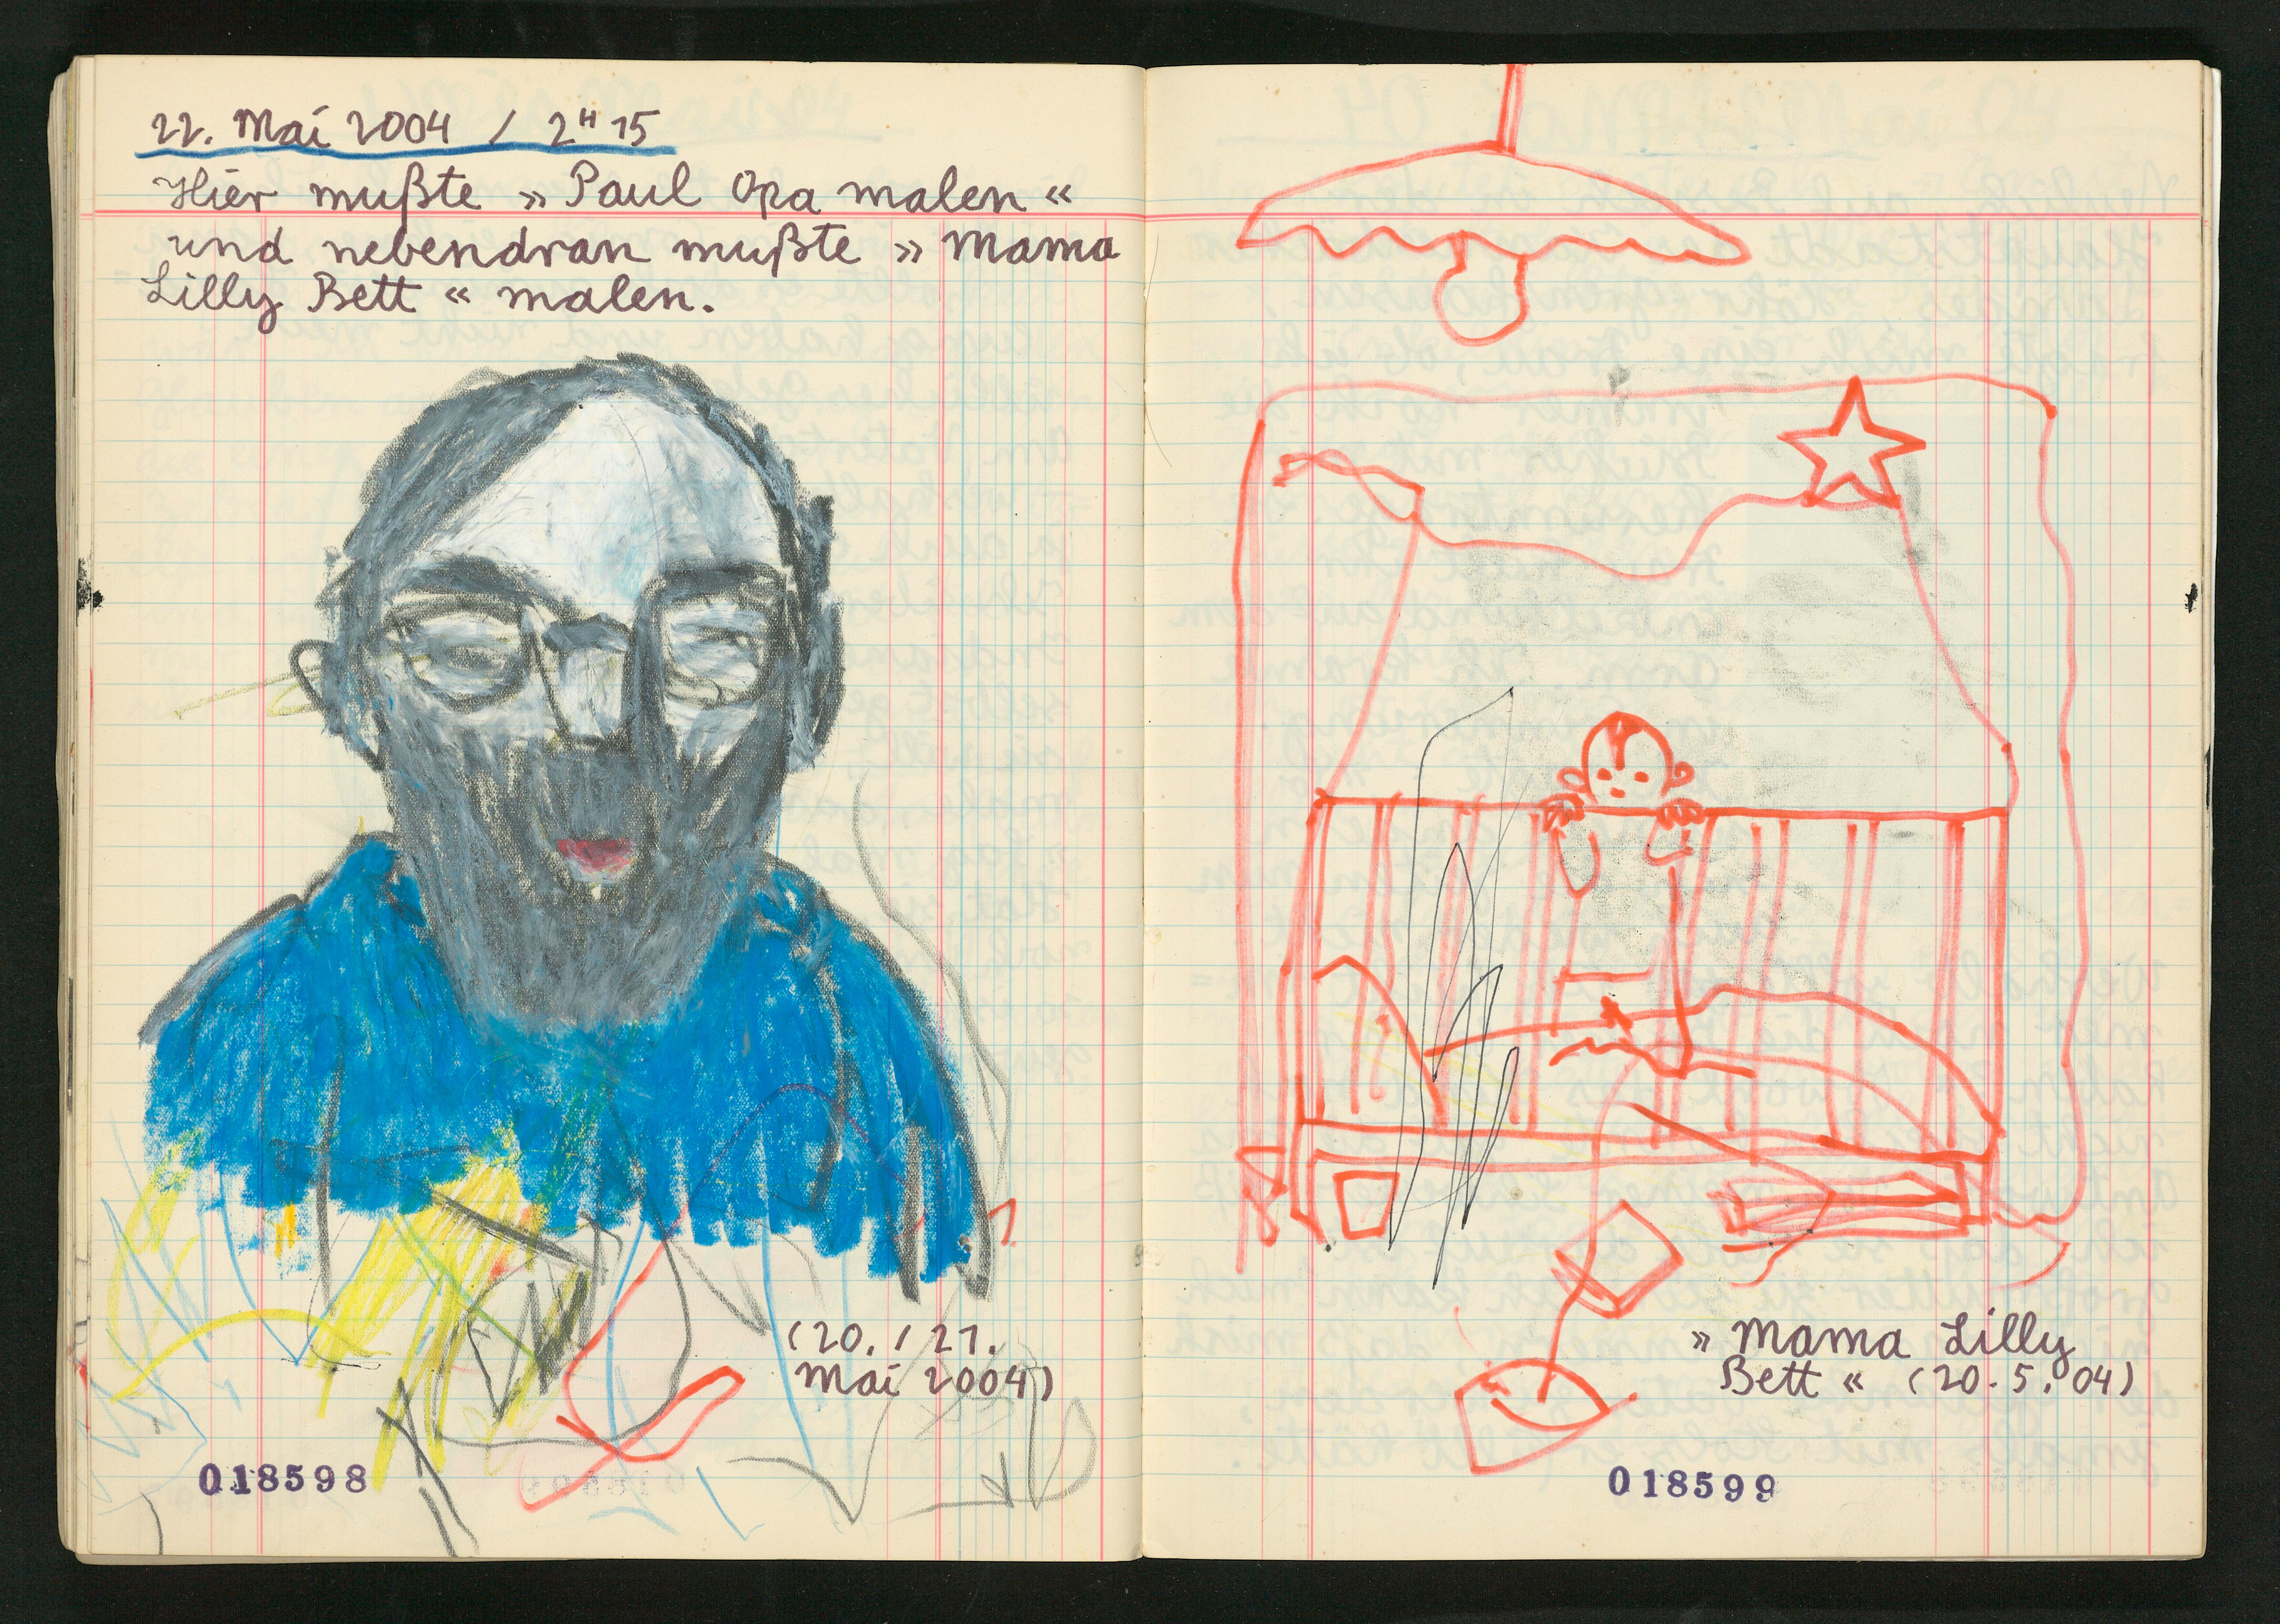 22. Mai 2004 / 2ᴴ 15
Hier mußte » Paul Opa malen «
und nebendran mußte » Mama
Lilly Bett « malen.
(20. / 21.
Mai 2004)
018598
» Mama Lilly
Bett « (20. 5. 04)
018599